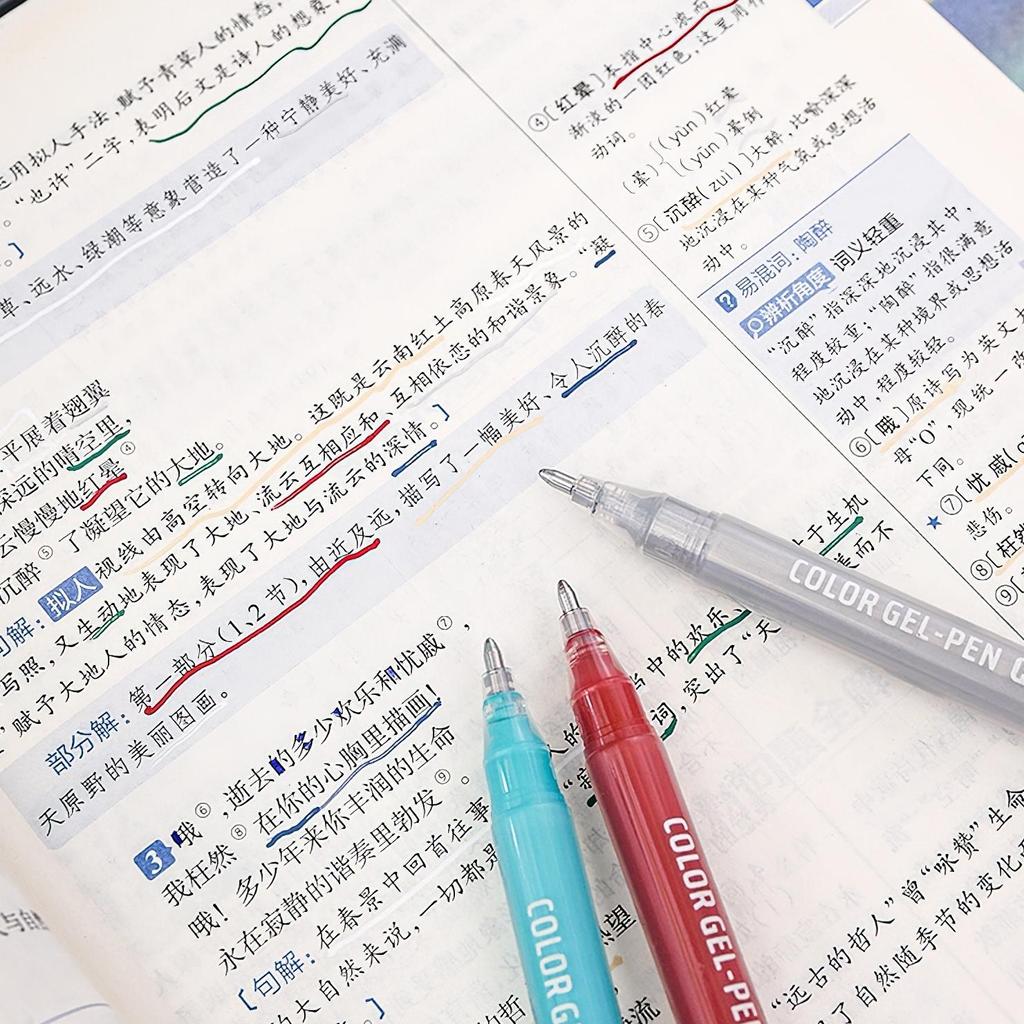 运用拟人手法，赋予青草人的情态，
。“也许”二字，表明后文是诗人的想象，
。]
草、远水、绿潮等意象营造了一种宁静美好、充满
平展着翅翼
深远的晴空里，
云慢慢地红晕④
沉醉⑤了凝望它的大地。
句解：拟人 视线由高空转向大地。这既是云南红土高原春天风景的
写照，又生动地表现了大地、流云互相应和、互相依恋的和谐景象。“凝
，赋予大地人的情态，表现了大地与流云的深情。]
部分解：第一部分(1、2节)，由近及远，描写了一幅美好、令人沉醉的春
天原野的美丽图画。
3 哦⑥，逝去的多少欢乐和忧戚⑦，
我枉然⑧在你的心胸里描画！
哦！多少年来你丰润的生命
永在寂静的谐奏里勃发⑨。
[句解：在春景中回首往事
的大自然来说，一切都是
]
于生机
美而不
当中的欢乐、
词，突出了“天
“远古的哲人”曾“咏赞”生命
了自然随季节的变化
④[红晕]本指中心浓而
渐淡的一团红色，这里用作
动词。
(晕){(yùn)红晕
(yūn)晕倒
⑤[沉醉(zuì)]大醉，比喻深深
地沉浸在某种气氛或思想活
动中。
易混词：陶醉
辨析角度 词义轻重
“沉醉”指深深地沉浸其中，
程度较重；“陶醉”指很满意
地沉浸在某种境界或思想活
动中，程度较轻。
⑥[哦]原诗写为英文
母“O”，现统一改
下同。
⑦[忧戚(
悲伤。
⑧[枉然
⑨[
COLOR GEL-PEN
COLOR GEL-PE
COLOR G